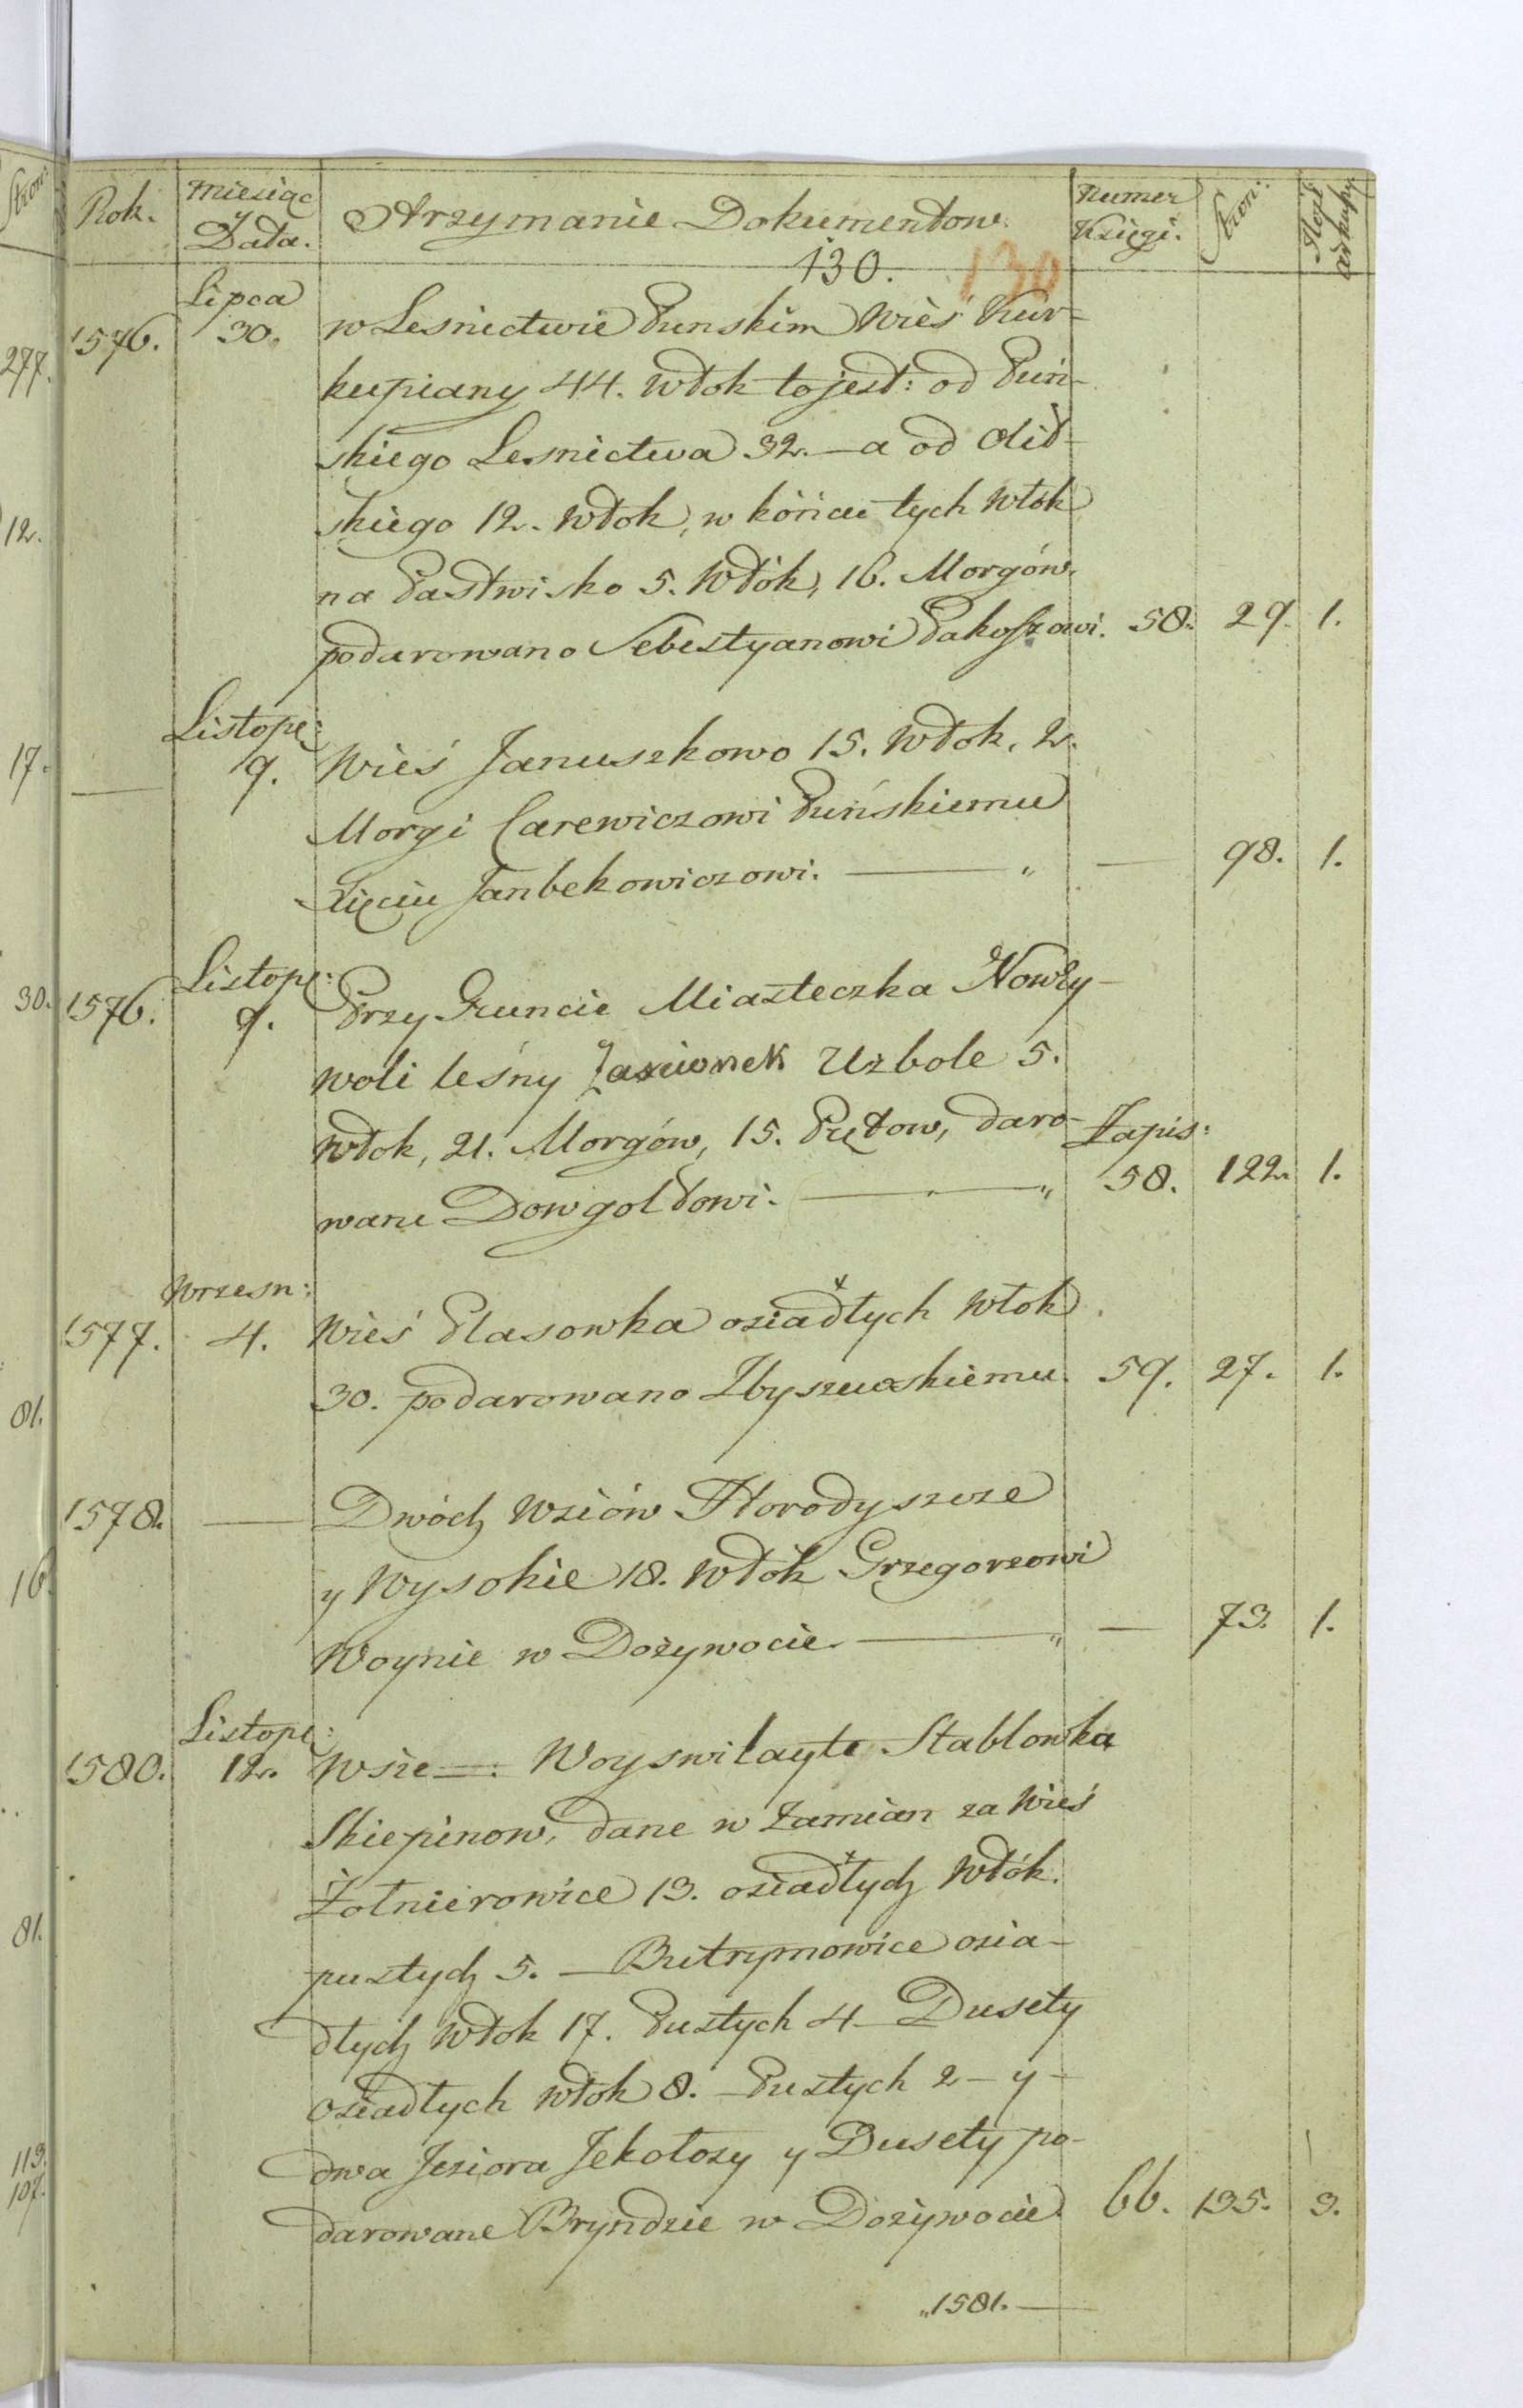 Rok. Miesiąc y Data. Otrzymanie Dokumentow. Numer Księgi. Stron:
130. 130
Lipca
1576. 30. w Lesnictwie Punskim Wieś Kur-
kupiany 44. Włok to jest: od Puń-
skiego Lesnictwa 32. — a od Olit-
skiego 12. Włok, w końcu tych Włók
na Pastwisko 5. Włók, 16. Morgów.
podarowano Sebestyanowi Pakoszowi. 58. 29. 1.
Listope:
— 9. Wieś Januszkowo 15. Włok, 2.
Morgi Carewiczowi Puńskiemu
Zięciu Janbekowiczowi. — „ — 98. 1.
Listope:
1576. 9. Przy Gruncie Miasteczka Nowey-
woli leśny Zascionek Uzbole 5.
Włok, 21. Morgów, 15. Pętow, daro- Zapis:
wane Dowgoldowi. — „ 58. 122. 1.
Wrzesn:
1577. 4. Wieś Plasowka osiadłych Włok
30. podarowano Zbyszewskiemu. 59. 27. 1.
1578. — Dwóch Wsiów Horodyszcze
y Wysokie 18. Włók Grzegorzowi
Woynie w Dożywocie. — „ — 73. 1.
Listope:
1580. 12. Wsie =: Woyswilayte Stablowka
Skiepinow, dane w Zamian za Wieś
Żołnierowice 13. osiadłych Włók.
pustych 5. — Butrymowice osia-
dłych Włok 17. Pustych 4 — Dusety
Osiadłych Włok 8. — Pustych 2 — y —
dwa Jeziora Jekołozy y Dusety po-
darowane Bryndzie w Dożywocie. 66. 135. 3.
„1581. —
277.
12.
17.
30.
81.
16.
81.
113.
107.